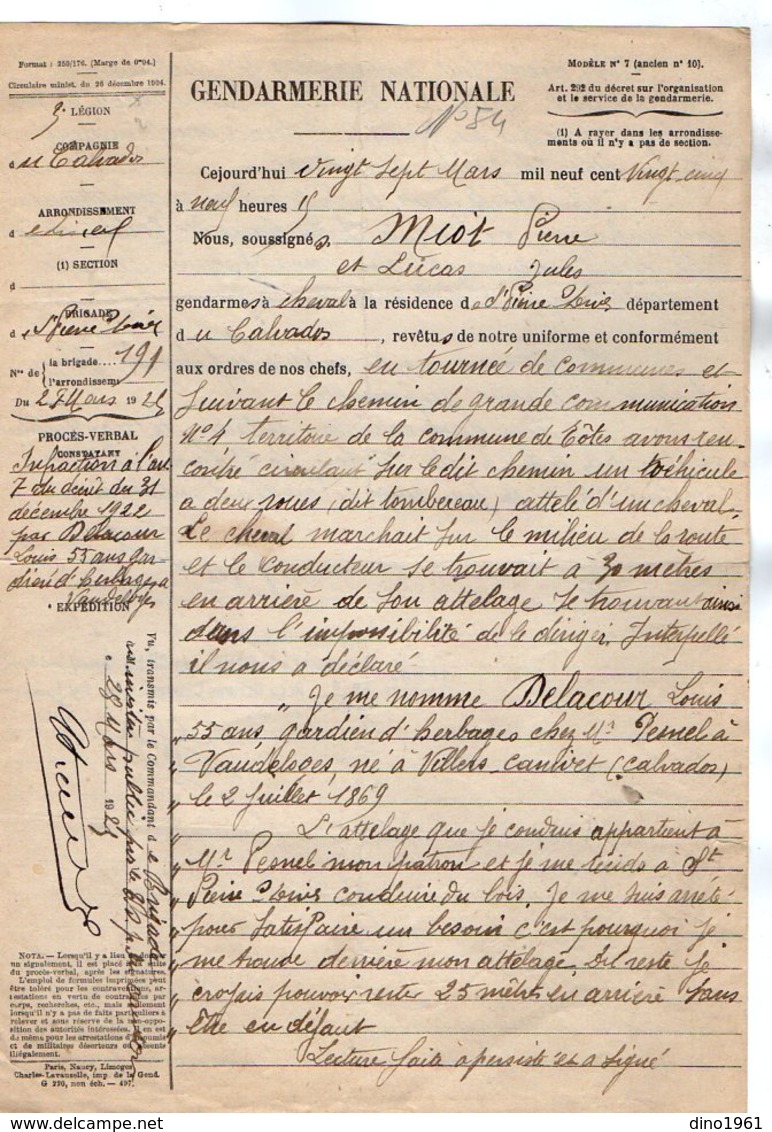 Format : 250/176. (Marge de 0m04.)
Circulaire minist. du 26 décembre 1904.
3e LÉGION
COMPAGNIE
du Calvados
ARRONDISSEMENT
d
(1) SECTION
d
BRIGADE
de St Pierre s/Dives
Nos de { la brigade .... 191
l'arrondissemt
Du 27 Mars 1925
PROCÈS-VERBAL
CONSTATANT
Infraction à l'art
7 du décret du 31
décembre 1922
par Delacour
Louis 55 ans gar
dien d'herbages à
Vaudeloges
EXPÉDITION
Vu, transmis par le Commandant d e Brigade
28 Mars 1925
NOTA. — Lorsqu'il y a lieu de donner
un signalement, il est placé à la suite
du procès-verbal, après les signatures.
L'emploi de formules imprimées peut
être toléré pour les contraventions, ar-
restations en vertu de contraintes par
corps, recherches, etc., mais seulement
lorsqu'il n'y a pas de faits particuliers à
relever et sous réserve de la non-oppo-
sition des autorités intéressées. Il en est
de même pour les arrestations d'insoumis
et de militaires déserteurs ou absents
illégalement.
Paris, Nancy, Limoges
Charles-Lavauzelle, imp. de la Gend.
G 220, non éch. — 497.
MODÈLE N° 7 (ancien n° 10).
Art. 292 du décret sur l'organisation
et le service de la gendarmerie.
(1) A rayer dans les arrondisse-
ments où il n'y a pas de section.
GENDARMERIE NATIONALE
N° 54
Cejourd'hui vingt sept Mars mil neuf cent vingt cinq
à neuf heures 15
Nous, soussignés, Miot Pierre
et Lucas Jules
gendarmes à cheval à la résidence de St Pierre s/Dives département
du Calvados, revêtus de notre uniforme et conformément
aux ordres de nos chefs, en tournée de communes et
suivant le chemin de grande communication
N° 4 territoire de la commune de Tôtes avons ren-
contré circulant sur le dit chemin un véhicule
a deux roues (dit tombereau) attelé d'un cheval.
Le cheval marchait sur le milieu de la route
et le conducteur se trouvait à 30 mètres
en arrière de son attelage se trouvant ainsi
dans l'impossibilité de le diriger. Interpellé
il nous a déclaré
" Je me nomme Delacour Louis
" 55 ans gardien d'herbages chez Mr Pesnel à
" Vaudeloges, né à Villers-canivet (calvados)
" le 2 juillet 1869
" L'attelage que je conduis appartient à
" Mr Pesnel mon patron et je me rends à St
" Pierre s/Dives conduire du bois. Je me suis arrêté
" pour satisfaire un besoin c'est pourquoi je
" me trouve derrière mon attelage. Du reste je
" croyais pouvoir rester 25 mètres en arrière sans
" être en défaut
Lecture faite a persisté et a signé
dino1961